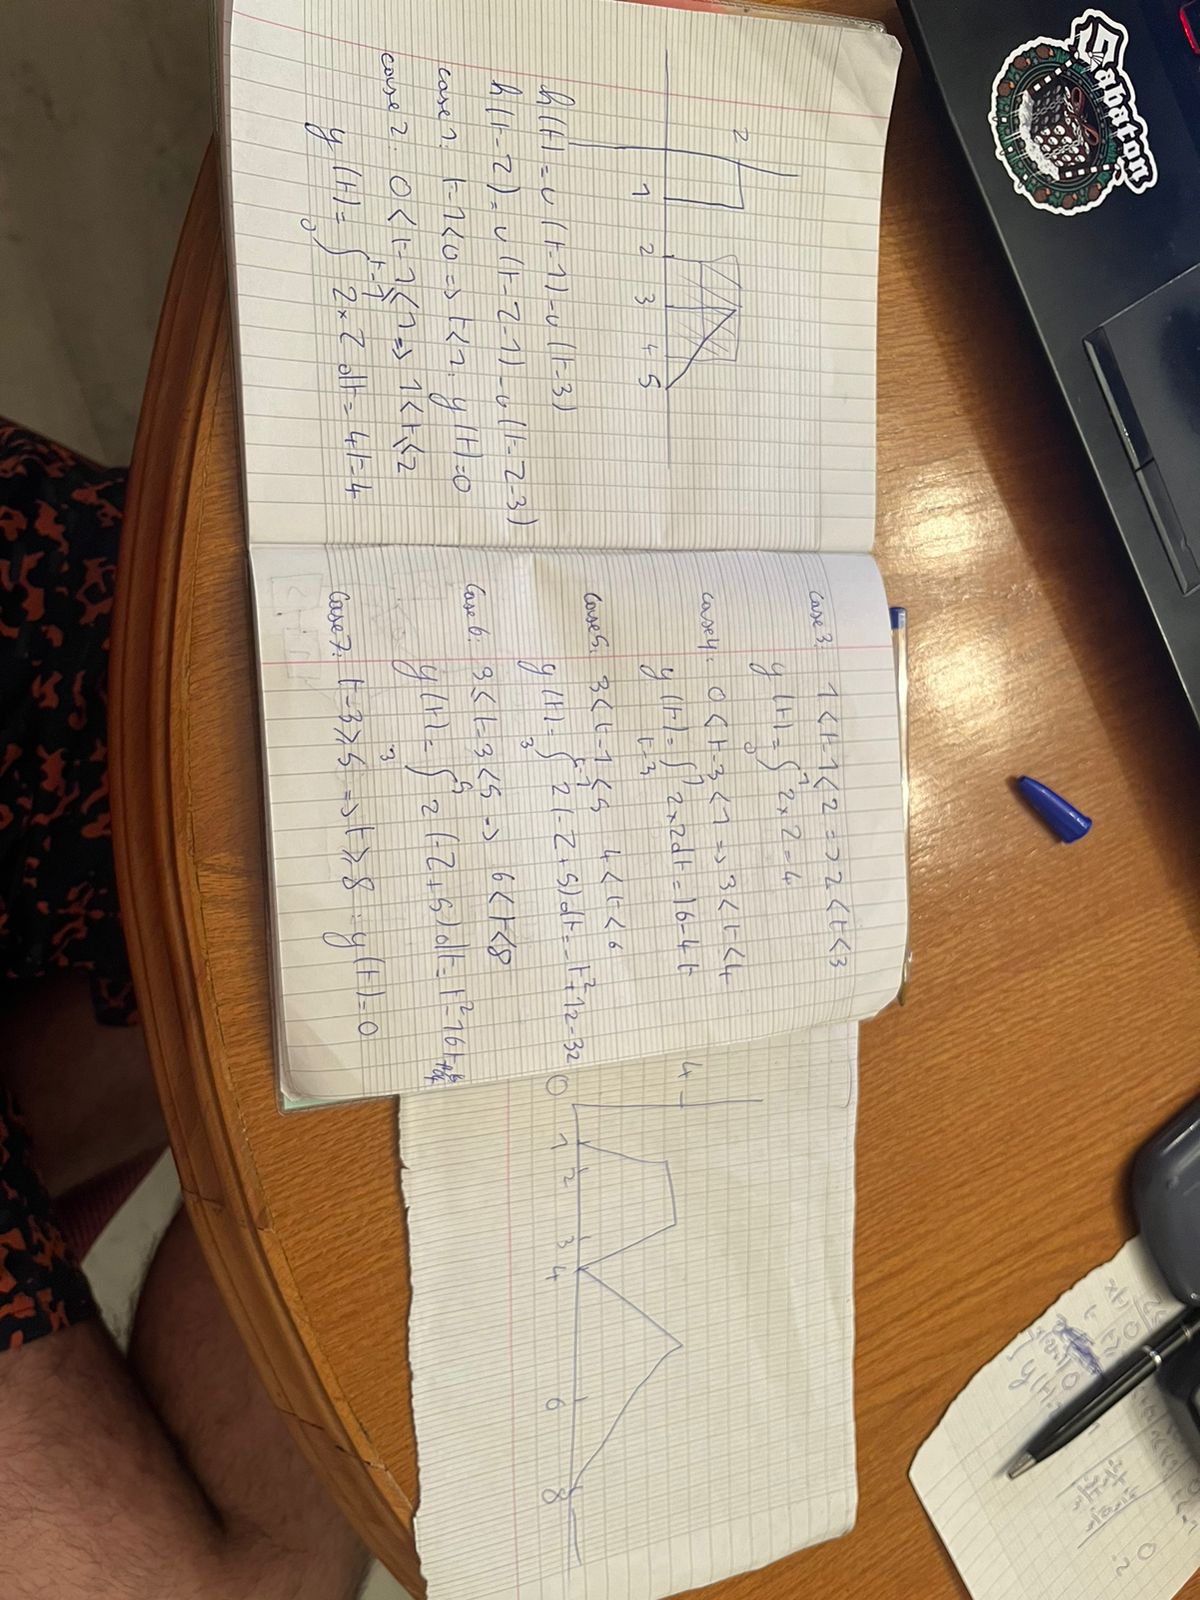 2
1 2 3 4 5
h(t)=u(t-1)-u(t-3)
h(t-τ)=u(t-τ-1)-u(t-τ-3)
case1: t-1<0 => t<1: y(t)=0
case2: 0<t-1≤1 => 1<t≤2
y(t)=∫₀^{t-1} 2×2 dt=4t-4
case3: 1<t-1<2 => 2<t<3
y(t)=∫₀^1 2×2=4
case4: 0<t-3<1 => 3<t<4
y(t)=∫_{t-3}^1 2×2dt=16-4t
case5: 3<t-1<5 4<t<6
y(t)=∫₃^{t-1} 2(-τ+5)dt=-t²+12-32
case6: 3<t-3<5 => 6<t<8
y(t)=∫₃^5 2(-τ+5)dt=t²-16t+64
case7: t-3≥5 => t≥8 : y(t)=0
4
0 1 2 3 4 6 8
Sabaton